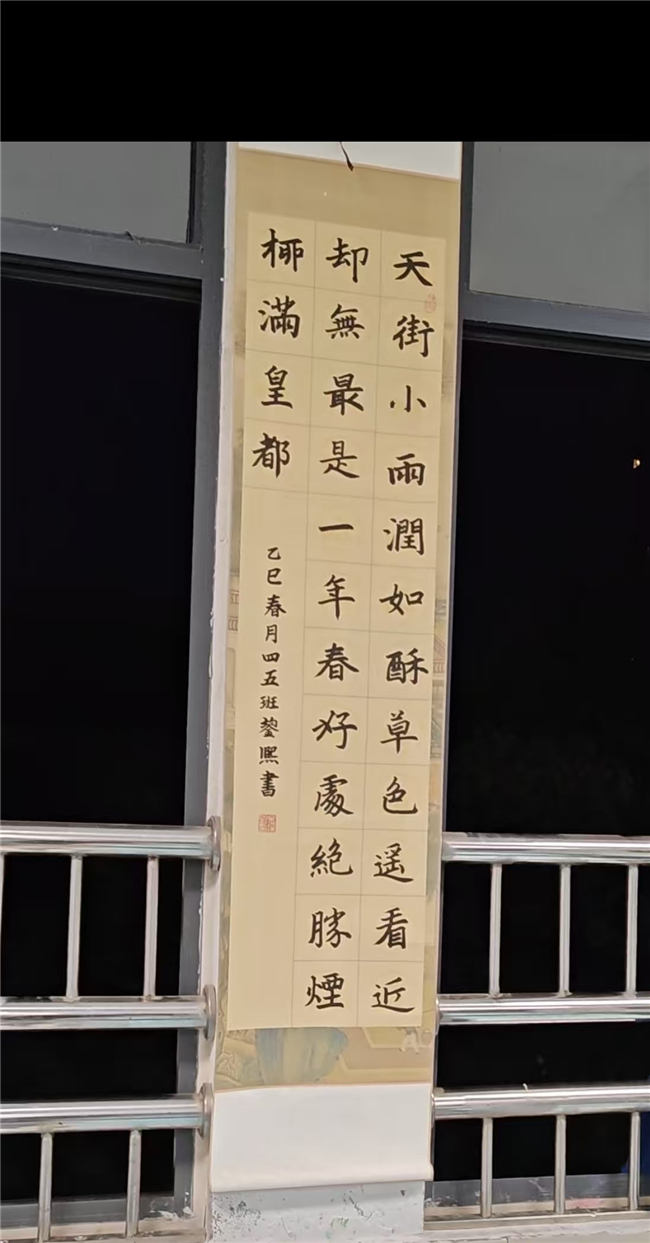 天街小雨潤如酥草色遥看近
却無最是一年春好處絕勝煙
栁滿皇都
乙巳春月四五班鋆熙書